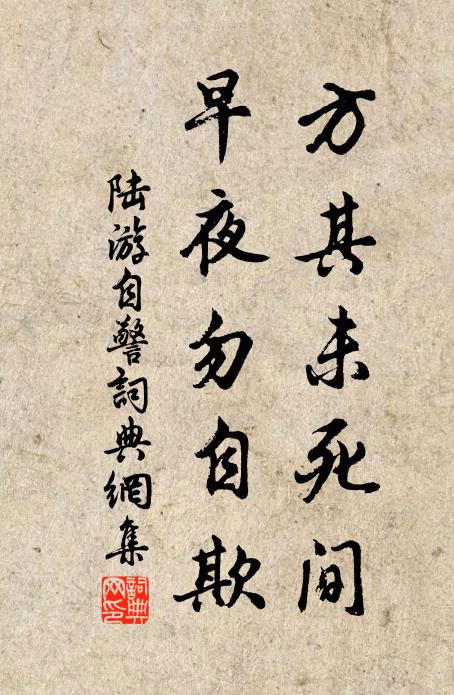 方其未死間
早夜勿自欺
陆游自警詞典網集
詞典
网印